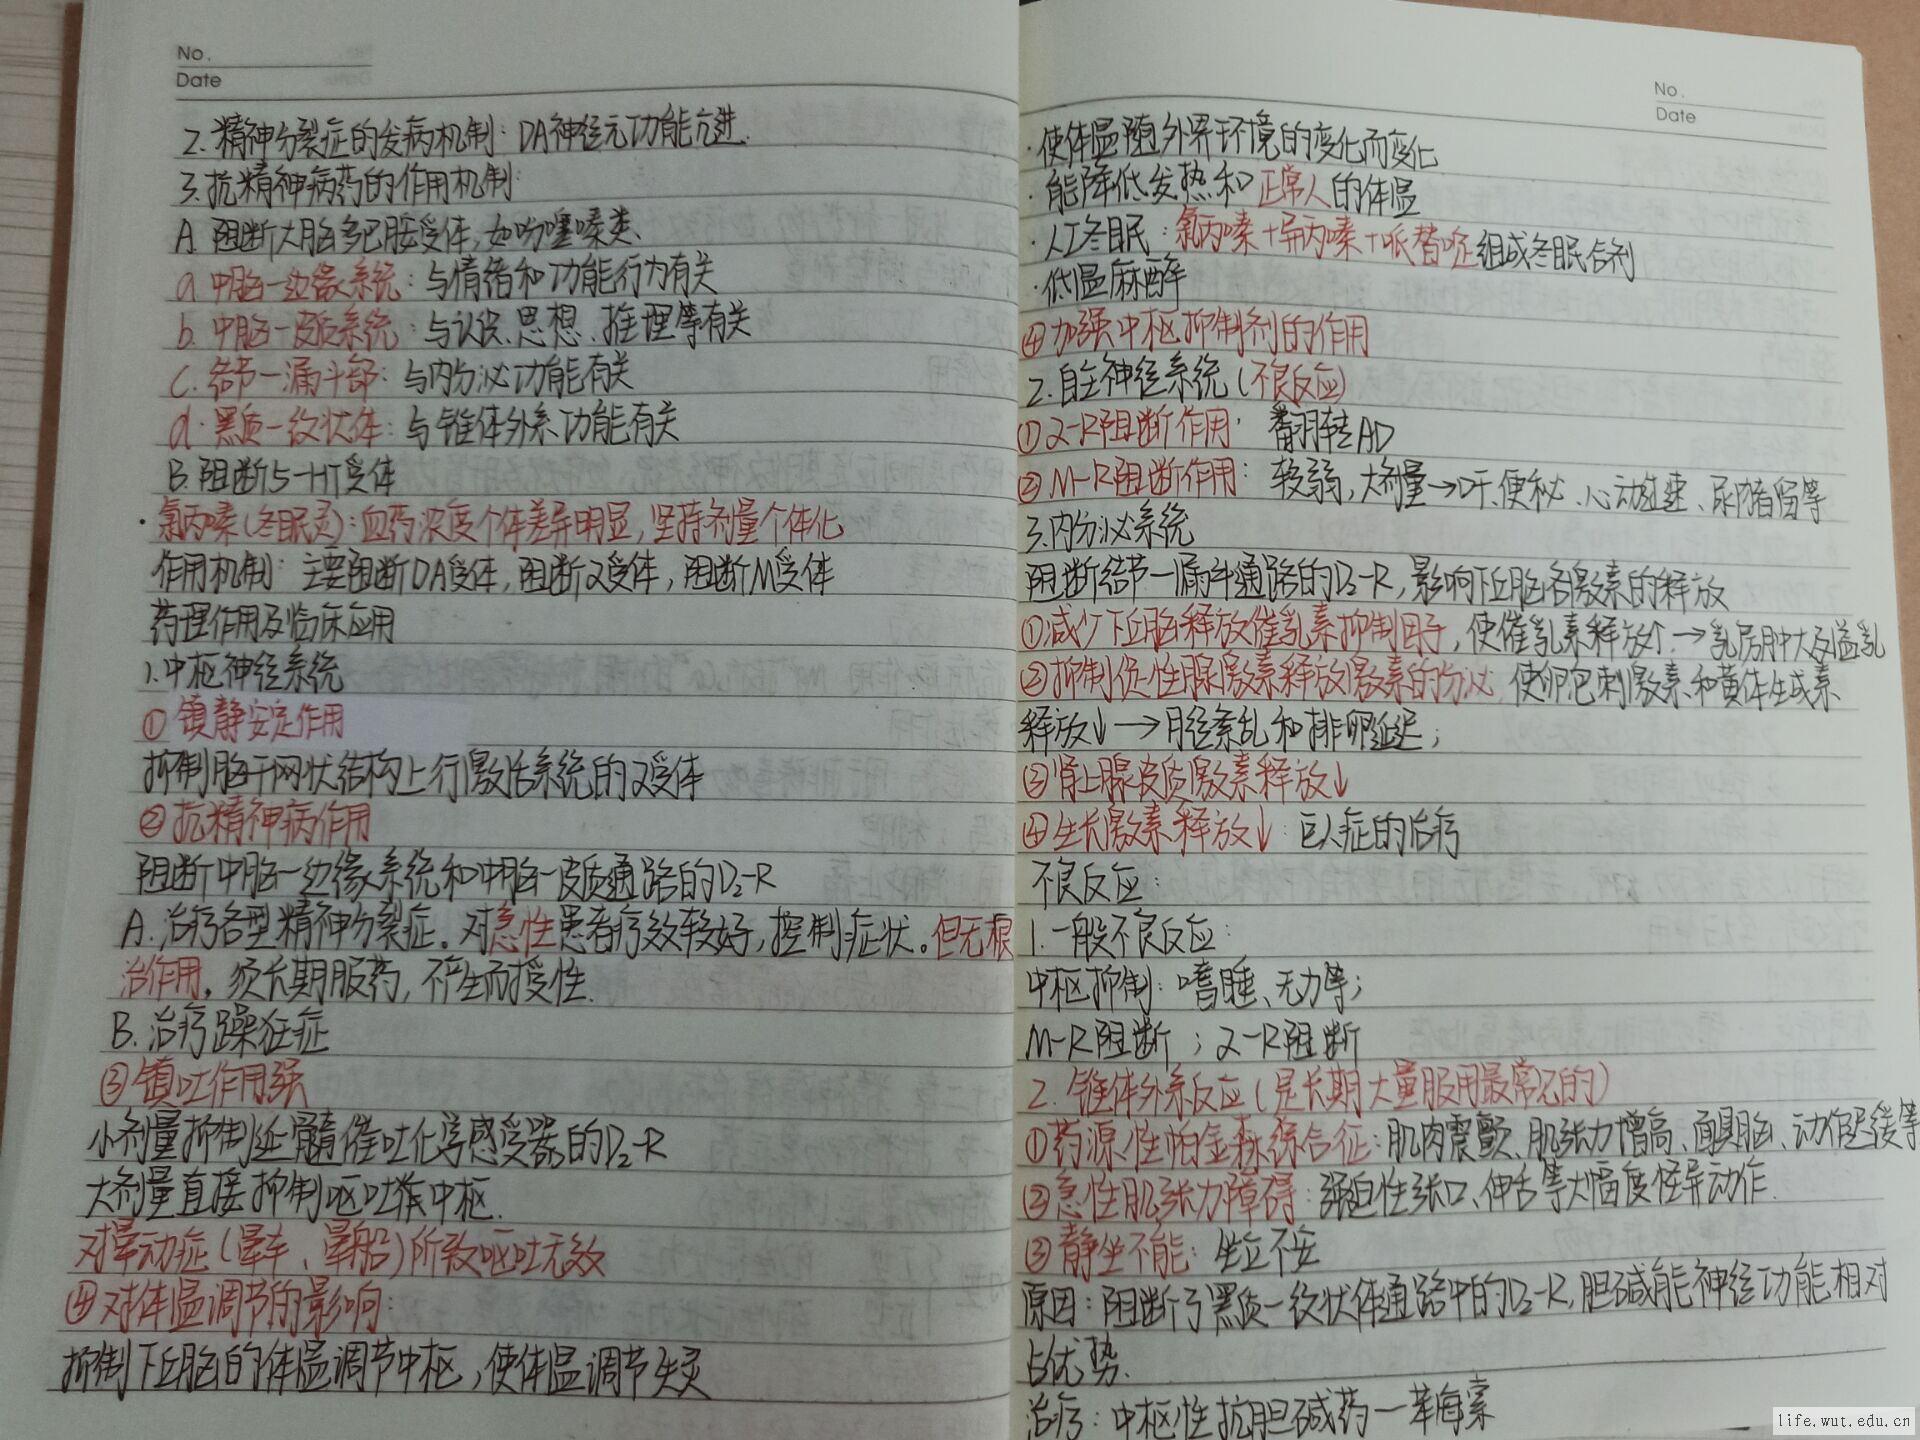 No.
Date
2.精神分裂症的发病机制：DA神经元功能亢进.
3.抗精神病药的作用机制:
A.阻断大脑多巴胺受体,如吩噻嗪类.
a.中脑—边缘系统：与情绪和功能行为有关
b.中脑—皮质系统：与认识、思想、推理等有关
c.结节—漏斗部：与内分泌功能有关
d.黑质—纹状体：与锥体外系功能有关
B.阻断5-HT受体
·氯丙嗪(冬眠灵)：血药浓度个体差异明显,坚持剂量个体化
作用机制：主要阻断DA受体,阻断α受体,阻断M受体
药理作用及临床应用
1.中枢神经系统
①镇静安定作用
抑制脑干网状结构上行激活系统的α受体
②抗精神病作用
阻断中脑—边缘系统和中脑—皮质通路的D₂-R
A.治疗各型精神分裂症。对急性患者疗效较好,控制症状。但无根
治作用。须长期服药,不产生耐受性.
B.治疗躁狂症
③镇吐作用强
小剂量抑制延髓催吐化学感受器的D₂-R
大剂量直接抑制呕吐中枢.
对晕动症(晕车、晕船)所致呕吐无效
④对体温调节的影响:
抑制下丘脑的体温调节中枢,使体温调节失灵
No.
Date
·使体温随外界环境的变化而变化
·能降低发热和正常人的体温
·人工冬眠：氯丙嗪+异丙嗪+哌替啶组成冬眠合剂
·低温麻醉
④加强中枢抑制剂的作用
2.自主神经系统(不良反应)
①α-R阻断作用：翻转AD
②M-R阻断作用：较弱,大剂量→口干、便秘、心动过速、尿潴留等
3.内分泌系统
阻断结节—漏斗通路的D₂-R,影响下丘脑各激素的释放
①减少下丘脑释放催乳素抑制因子,使催乳素释放↑→乳房肿大及溢乳
②抑制促性腺激素释放激素的分泌,使卵泡刺激素和黄体生成素
释放↓→月经紊乱和排卵延迟;
③肾上腺皮质激素释放↓
④生长激素释放↓：巨人症的治疗
不良反应:
1.一般不良反应:
中枢抑制：嗜睡、无力等;
M-R阻断；α-R阻断
2.锥体外系反应(是长期大量服用最常见的)
①药源性帕金森综合征：肌肉震颤、肌张力增高、面具脸、动作迟缓等
②急性肌张力障碍：强迫性张口、伸舌等大幅度怪异动作.
③静坐不能：坐立不安
原因：阻断了黑质—纹状体通路中的D₂-R,胆碱能神经功能相对
占优势.
治疗：中枢性抗胆碱药—苯海索
life.wut.edu.cn